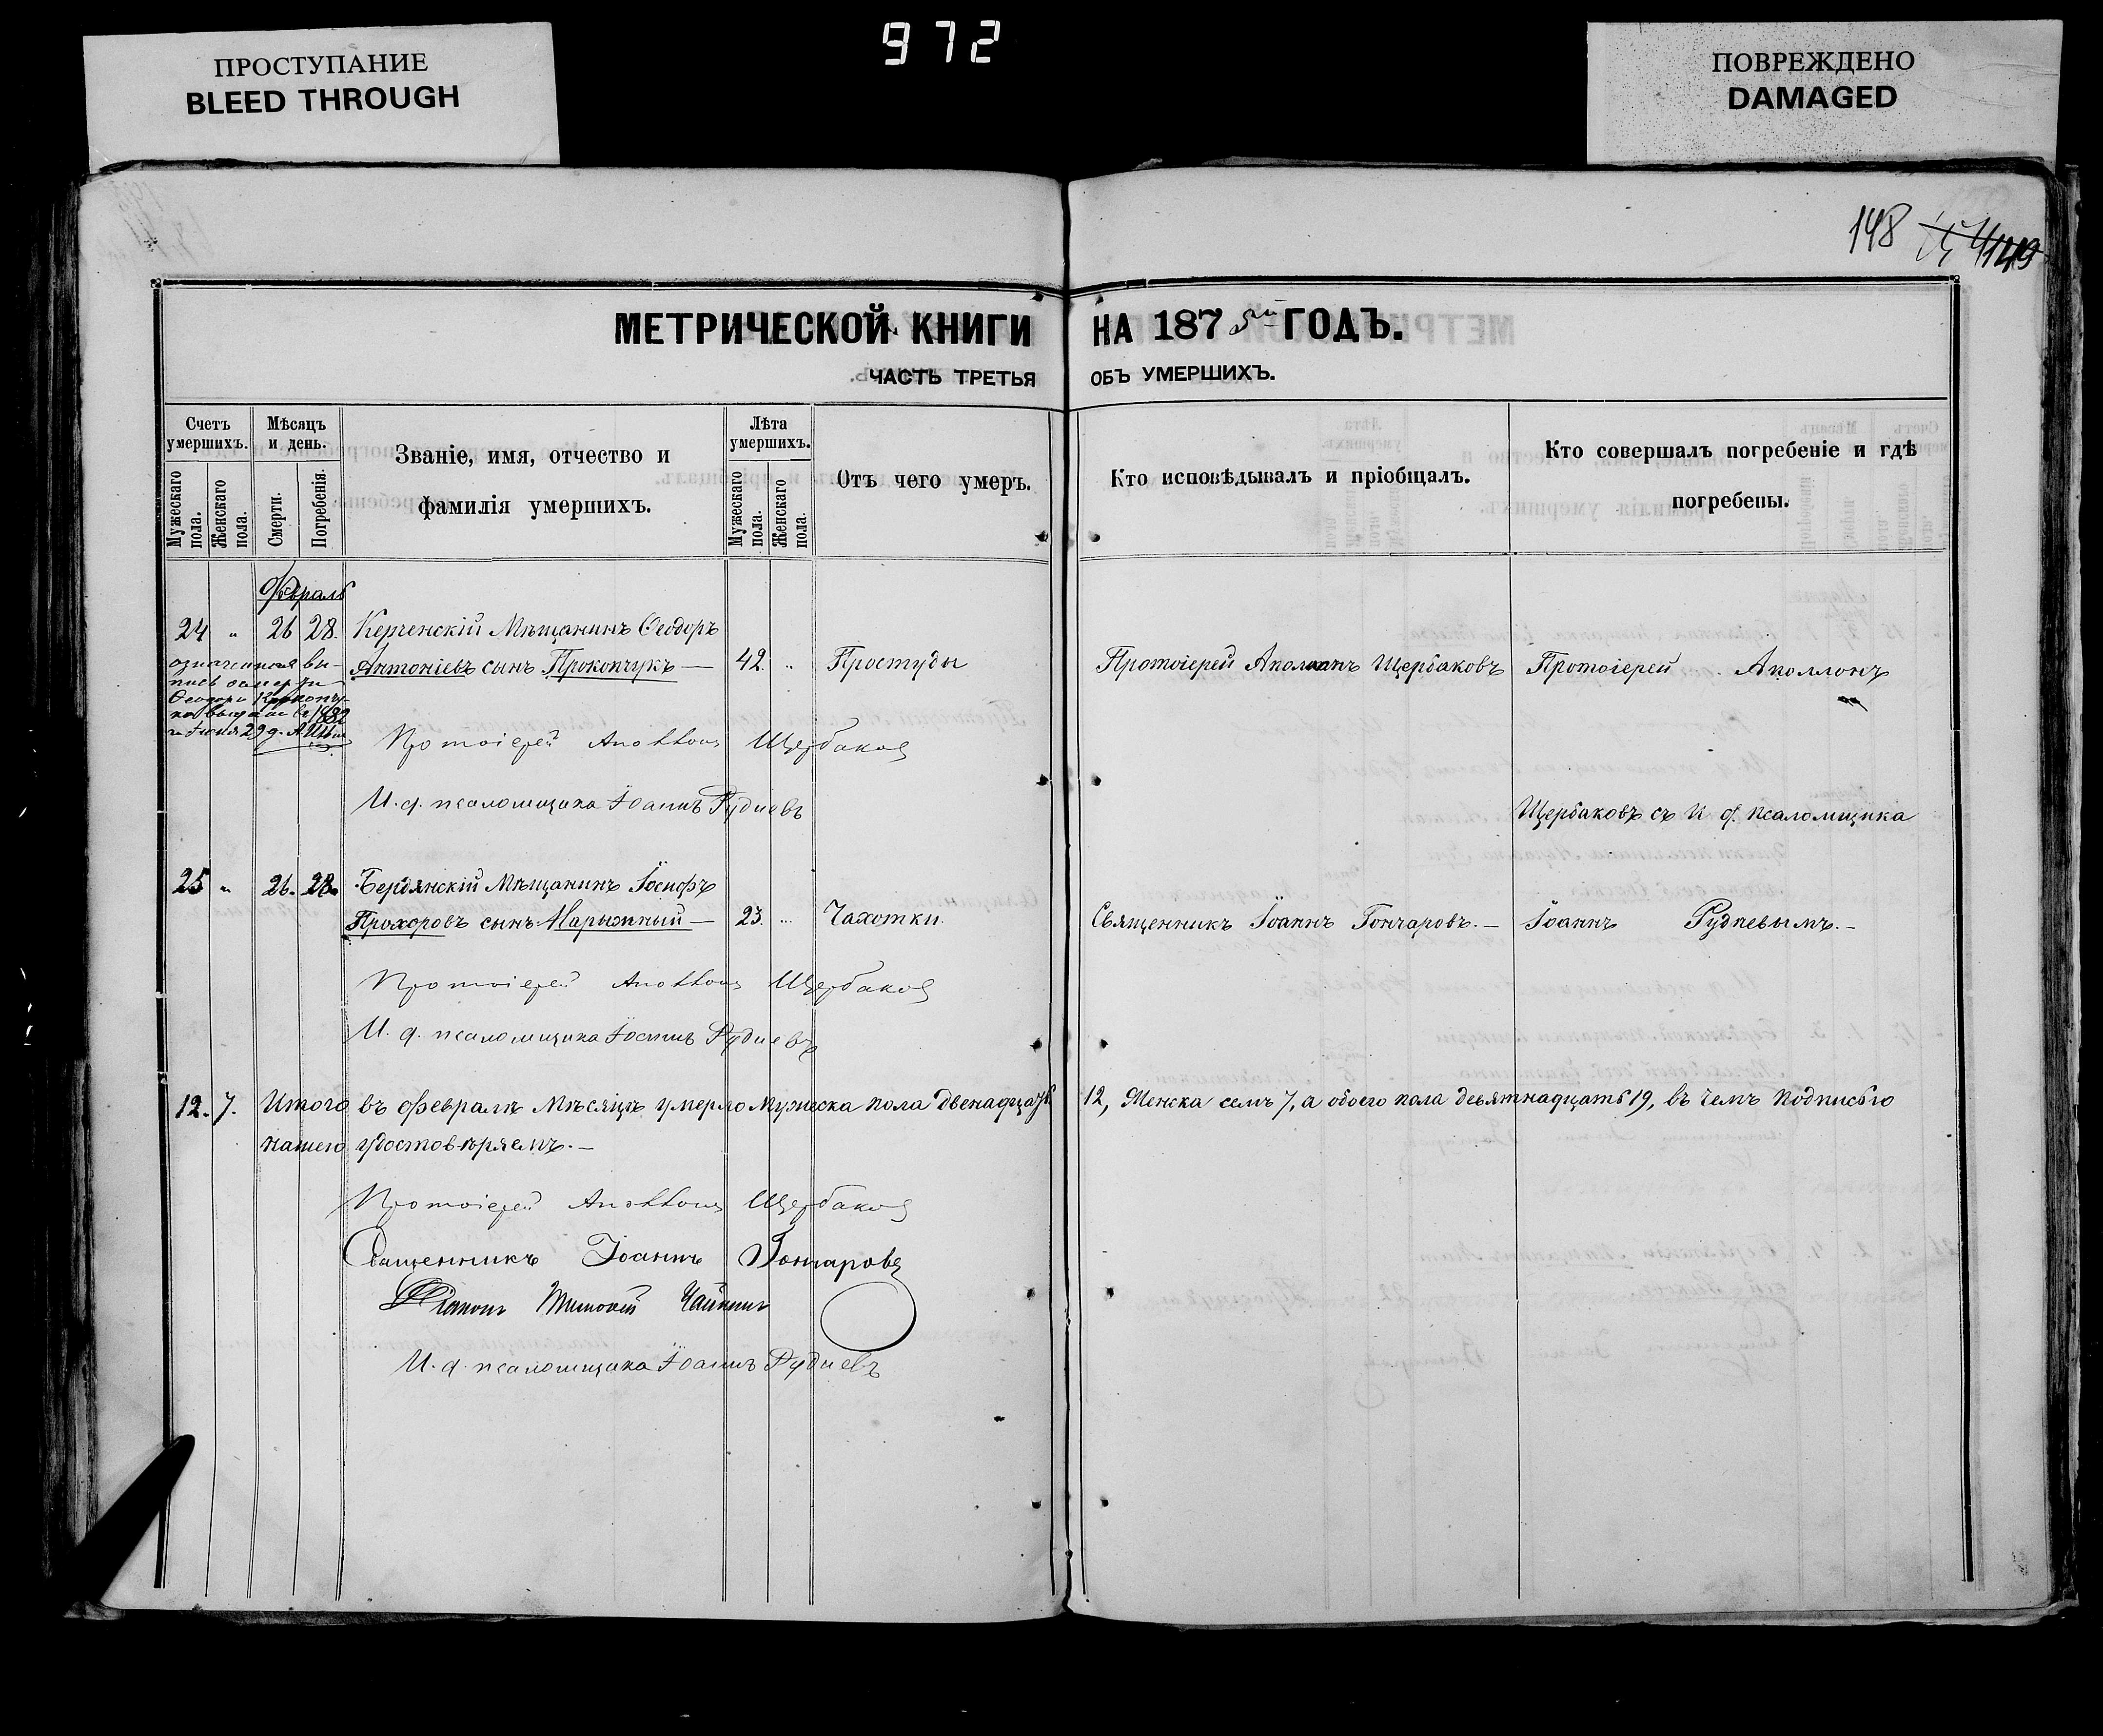 ПРОСТУПАНИЕ
BLEED THROUGH
972
ПОВРЕЖДЕНО
DAMAGED
148
149
МЕТРИЧЕСКОЙ КНИГИ НА 1875й ГОДЪ.
ЧАСТЬ ТРЕТЬЯ ОБЪ УМЕРШИХЪ.
Счетъ умершихъ.
Мужескаго пола.
Женскаго пола.
Мѣсяцъ и день.
Смерти.
Погребенія.
Званіе, имя, отчество и
фамилія умершихъ.
Лѣта умершихъ.
Мужескаго пола.
Женскаго пола.
Отъ чего умеръ.
Кто исповѣдывалъ и пріобщалъ.
Кто совершалъ погребеніе и гдѣ
погребены.
Февраль
24 " 26 28. Керченскій Мѣщанинъ Ѳеодоръ
Антоніевъ сынъ Прокопчукъ — 42. " Простуды Протоіерей Аполлонъ Щербаковъ Протоіерей Аполлонъ
Протоіерей Аполлонъ Щербаковъ
И. д. псаломщика Іоаннъ Рудневъ
Щербаковъ съ И д. псаломщика
25 " 26. 28. Бердянскій Мѣщанинъ Іосифъ
Прохоровъ сынъ Марыжный — 23. " Чахотки Священникъ Іоаннъ Гончаровъ. — Іоаннъ Рудневымъ. —
Протоіерей Аполлонъ Щербаковъ
И. д. псаломщика Іоаннъ Рудневъ
12. 7. Итого въ Февралѣ Мѣсяцѣ умерло Мужеска пола двенадцать 12, Женска семь 7, а обоего пола девятнадцать 19, въ чемъ подписью
нашею удостовѣряемъ. —
Протоіерей Аполлонъ Щербаковъ
Священникъ Іоаннъ Гончаровъ
Діаконъ
И. д. псаломщика Іоаннъ Рудневъ